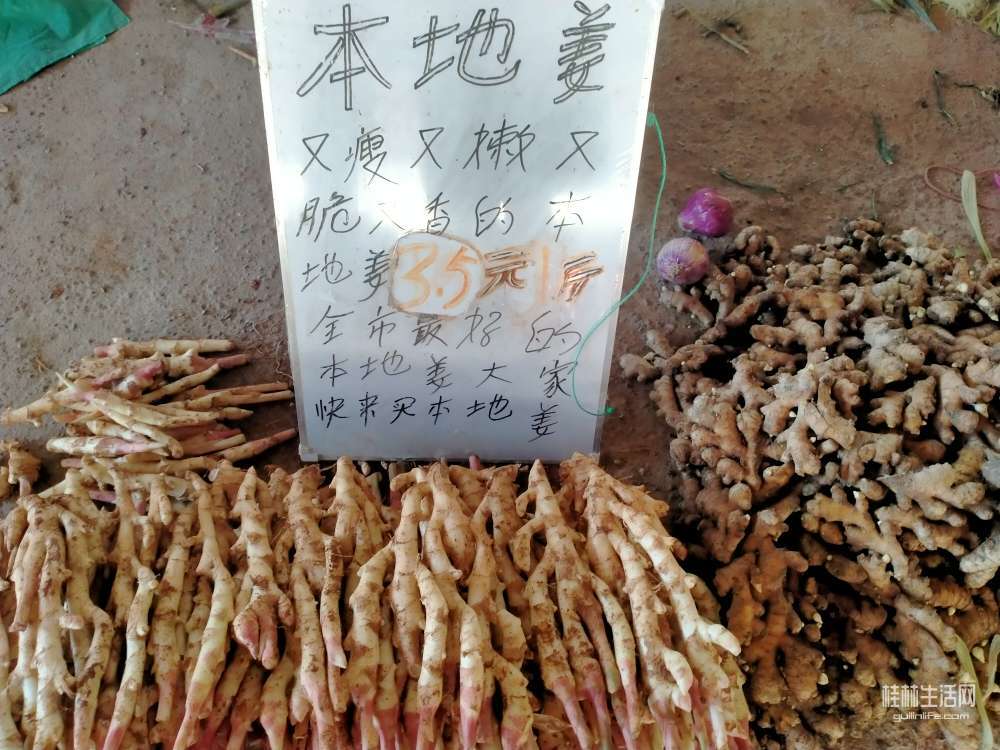 本地姜
又瘦又嫩又
脆又香的本
地姜3.5元1斤
全市最好的
本地姜大家
快来买本地姜
桂林生活网
guilinlife.com